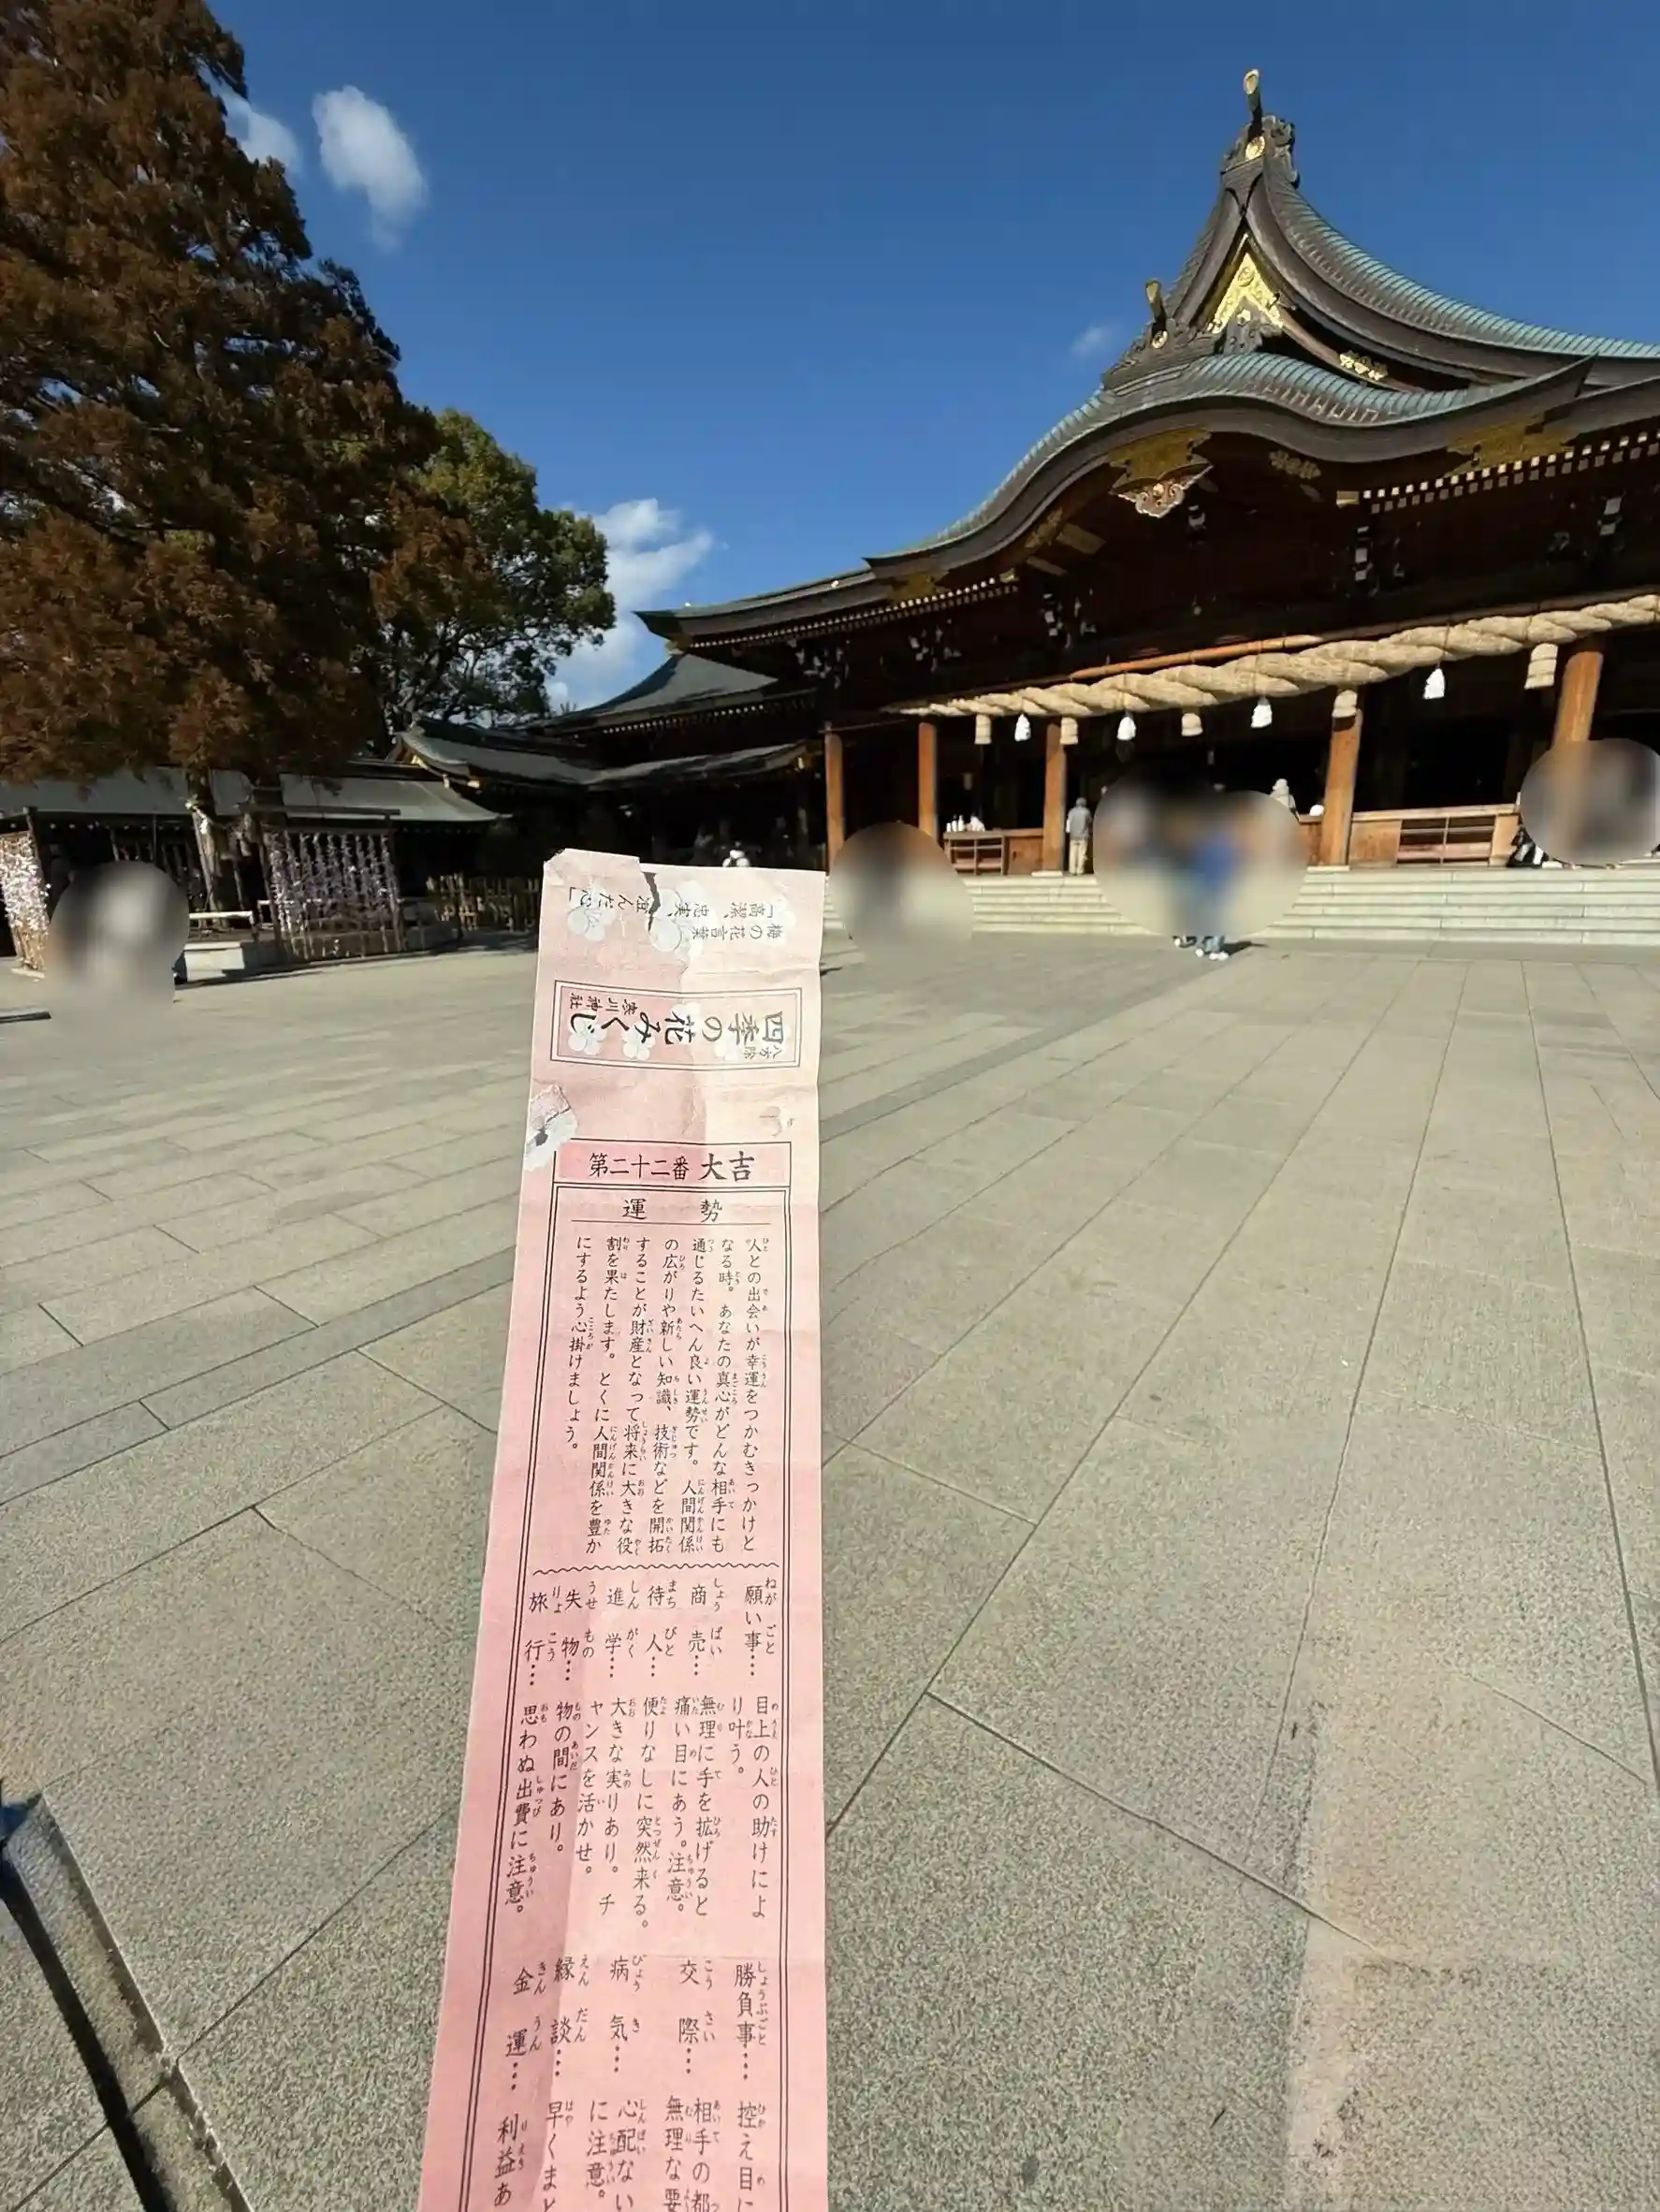 梅の花言葉
「高潔、忠実、
八方除
四季の花みくじ
寒川神社
第二十二番 大吉
運勢
人との出会いが幸運をつかむきっかけと
なる時。あなたの真心がどんな相手にも
通じるたいへん良い運勢です。人間関係
の広がりや新しい知識、技術などを開拓
することが財産となって将来に大きな役
割を果たします。とくに人間関係を豊か
にするよう心掛けましょう。
願い事…目上の人の助けによ
り叶う。
商売…無理に手を拡げると
痛い目にあう。注意。
待人…便りなしに突然来る。
進学…大きな実りあり。チ
ャンスを活かせ。
失物…物の間にあり。
旅行…思わぬ出費に注意。
勝負事…控え目に
交際…相手の都
無理な要
病気…心配ない
に注意。
縁談…早くまと
金運…利益あ